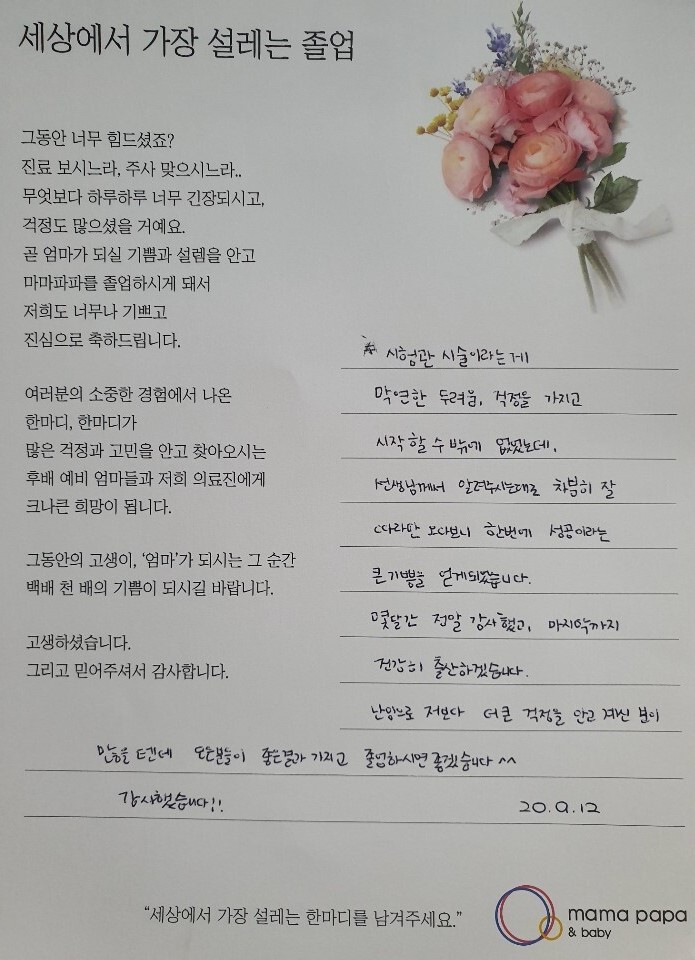 세상에서 가장 설레는 졸업
그동안 너무 힘드셨죠?
진료 보시느라, 주사 맞으시느라..
무엇보다 하루하루 너무 긴장되시고,
걱정도 많으셨을 거예요.
곧 엄마가 되실 기쁨과 설렘을 안고
마마파파를 졸업하시게 돼서
저희도 너무나 기쁘고
진심으로 축하드립니다.
여러분의 소중한 경험에서 나온
한마디, 한마디가
많은 걱정과 고민을 안고 찾아오시는
후배 예비 엄마들과 저희 의료진에게
크나큰 희망이 됩니다.
그동안의 고생이, '엄마'가 되시는 그 순간
백배 천 배의 기쁨이 되시길 바랍니다.
고생하셨습니다.
그리고 믿어주셔서 감사합니다.
시험관 시술이라는게
막연한 두려움, 걱정을 가지고
시작할 수 밖에 없었는데,
선생님께서 알려주시는대로 차분히 잘
따라만 오다보니 한번에 성공이라는
큰 기쁨을 얻게되었습니다.
몇달간 정말 감사했고, 마지막까지
건강히 출산하겠습니다.
난임으로 저보다 더 큰 걱정을 안고 계신 분이
많을 텐데 모든분들이 좋은결과 가지고 졸업하시면 좋겠습니다 ^^
감사했습니다!!
20.9.12
"세상에서 가장 설레는 한마디를 남겨주세요."
mama papa
& baby